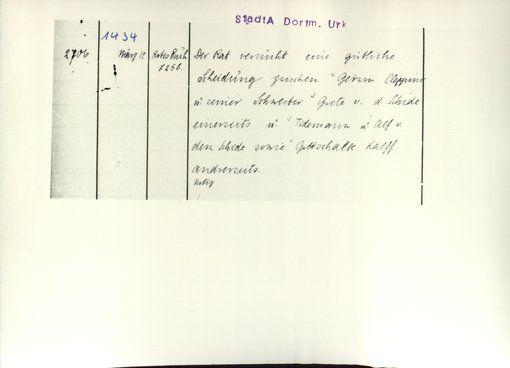 StadtA Dortm. Urk
1434
2706. März 12 Rotes Buch Der Rat versucht eine gütliche
225b. Scheidung zwischen Gerwin Cleppinc
u. seiner Schwester Grete v. d. Wide
einerseits u. Tidemann u. Alf v.
den Wide sowie Gottschalk Kalff
andrerseits.
Notiz